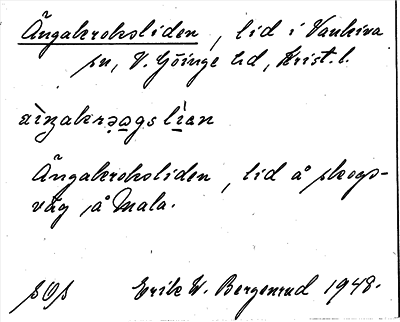 Ängakroksliden, lid i Vankiva
sn, V. Göinge hd, Krist. l.
Ängakroksliden, lid å skogs-
väg å Mala.
sOs Erik W. Bergenrud 1948.